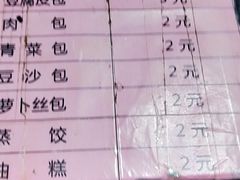 豆腐皮包 2元
肉包 2元
青菜包 2元
豆沙包 2元
萝卜丝包 2元
蒸饺 2元
油糕 2元